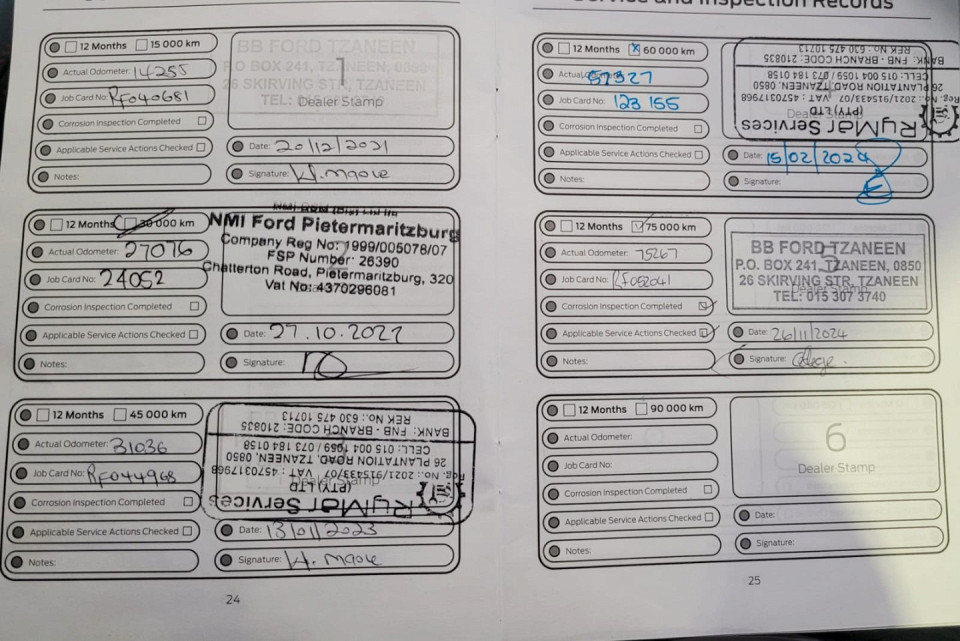 Service and Inspection Records
12 Months 15 000 km
Actual Odometer: 14255
Job Card No: RF040681
Corrosion Inspection Completed
Applicable Service Actions Checked
Notes:
BB FORD TZANEEN
P.O BOX 241, TZANEEN, 0850
26 SKIRVING STR, TZANEEN
TEL:
1
Dealer Stamp
Date: 20/12/2021
Signature:
12 Months 30 000 km
Actual Odometer: 27076
Job Card No: 24052
Corrosion Inspection Completed
Applicable Service Actions Checked
Notes:
NMI Ford Pietermaritzburg
Company Reg No: 1999/005078/07
FSP Number: 26390
Chatterton Road, Pietermaritzburg, 320
Vat No: 4370296081
Date: 27.10.2022
Signature:
12 Months 45 000 km
Actual Odometer: 31036
Job Card No: RF044968
Corrosion Inspection Completed
Applicable Service Actions Checked
Notes:
RyMar Services
(PTY) LTD
Reg. No.: 2021/915433/07 VAT : 4570317968
26 PLANTATION ROAD, TZANEEN, 0850
CELL: 015 004 1059 / 073 184 0158
BANK: FNB - BRANCH CODE: 210835
REK No.: 630 475 10713
Dealer Stamp
Date: 13/01/2023
Signature:
24
12 Months X 60 000 km
Actual Odometer: 57327
Job Card No: 123 155
Corrosion Inspection Completed
Applicable Service Actions Checked
Notes:
RyMar Services
(PTY) LTD
Reg. No.: 2021/915433/07 VAT : 4570317968
26 PLANTATION ROAD, TZANEEN, 0850
CELL: 015 004 1059 / 073 184 0158
BANK: FNB - BRANCH CODE: 210835
REK No.: 630 475 10713
Date: 15/02/2024
Signature:
12 Months 75 000 km
Actual Odometer: 75267
Job Card No: RF052041
Corrosion Inspection Completed
Applicable Service Actions Checked
Notes:
BB FORD TZANEEN
P.O. BOX 241, TZANEEN, 0850
26 SKIRVING STR, TZANEEN
TEL: 015 307 3740
Dealer Stamp
Date: 26/11/2024
Signature:
12 Months 90 000 km
Actual Odometer:
Job Card No:
Corrosion Inspection Completed
Applicable Service Actions Checked
Notes:
6
Dealer Stamp
Date:
Signature:
25